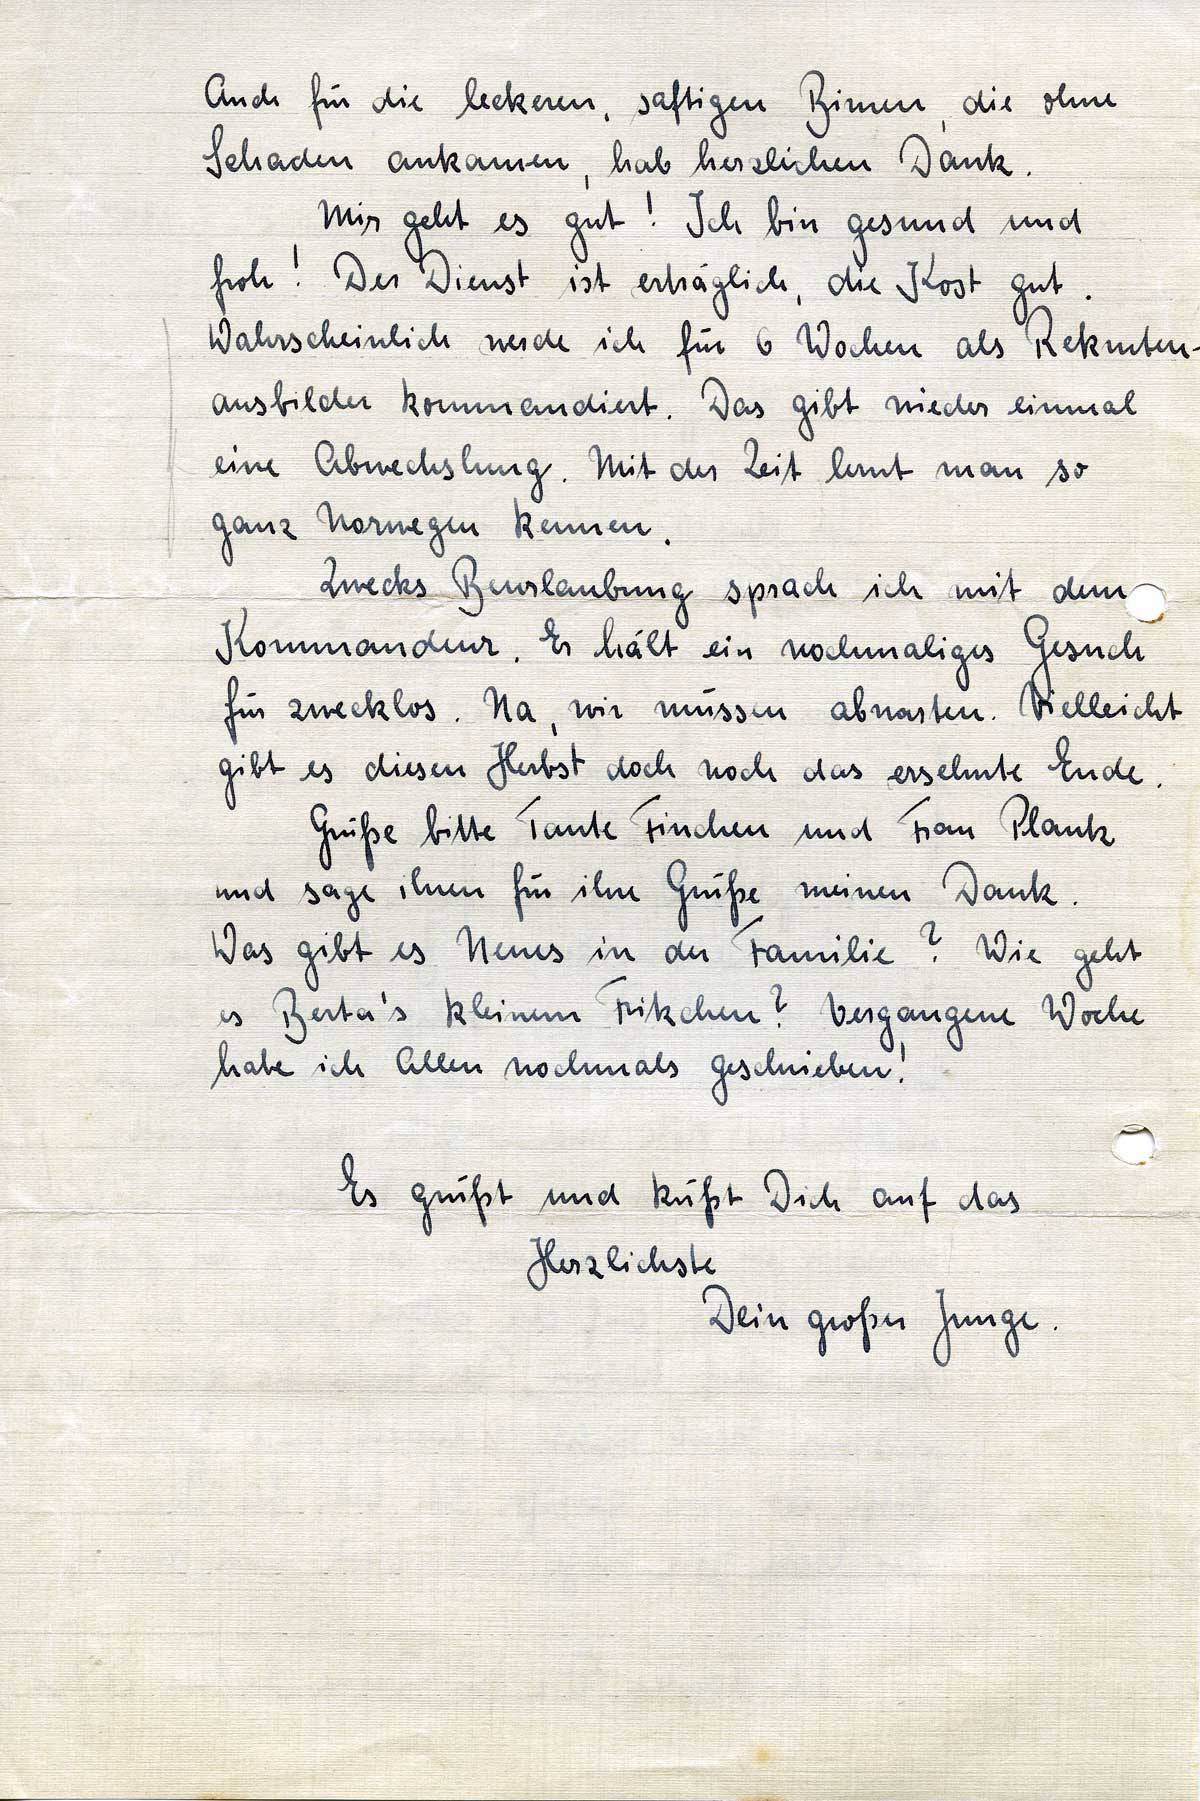 Auch für die leckeren, saftigen Birnen, die ohne
Schaden ankamen, hab herzlichen Dank.
Mir geht es gut! Ich bin gesund und
froh! Der Dienst ist erträglich, die Kost gut.
Wahrscheinlich werde ich für 6 Wochen als Rekruten-
ausbilder kommandiert. Das gibt wieder einmal
eine Abwechslung. Mit der Zeit lernt man so
ganz Norwegen kennen.
Zwecks Beurlaubung sprach ich mit dem
Kommandeur. Er hält ein nochmaliges Gesuch
für zwecklos. Na, wir müssen abwarten. Vielleicht
gibt es diesen Herbst doch noch das ersehnte Ende.
Grüße bitte Tante Finchen und Frau Plank
und sage ihnen für ihre Grüße meinen Dank.
Was gibt es Neues in der Familie? Wie geht
es Berta's kleinem Fritzchen? Vergangene Woche
habe ich Allen nochmals geschrieben!
Es grüßt und küßt Dich auf das
Herzlichste
Dein großer Junge.